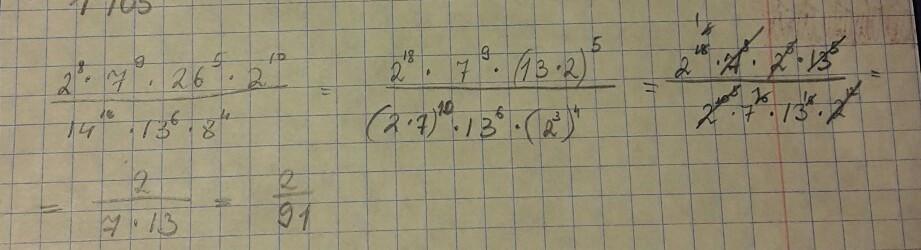 \frac{2^8 \cdot 7^9 \cdot 26^5 \cdot 2^{10}}{14^{10} \cdot 13^6 \cdot 8^4} = \frac{2^{18} \cdot 7^9 \cdot (13 \cdot 2)^5}{(2 \cdot 7)^{10} \cdot 13^6 \cdot (2^3)^4} = \frac{2^{18} \cdot 7^9 \cdot 2^5 \cdot 13^5}{2^{10} \cdot 7^{10} \cdot 13^6 \cdot 2^{12}} =
= \frac{2}{7 \cdot 13} = \frac{2}{91}